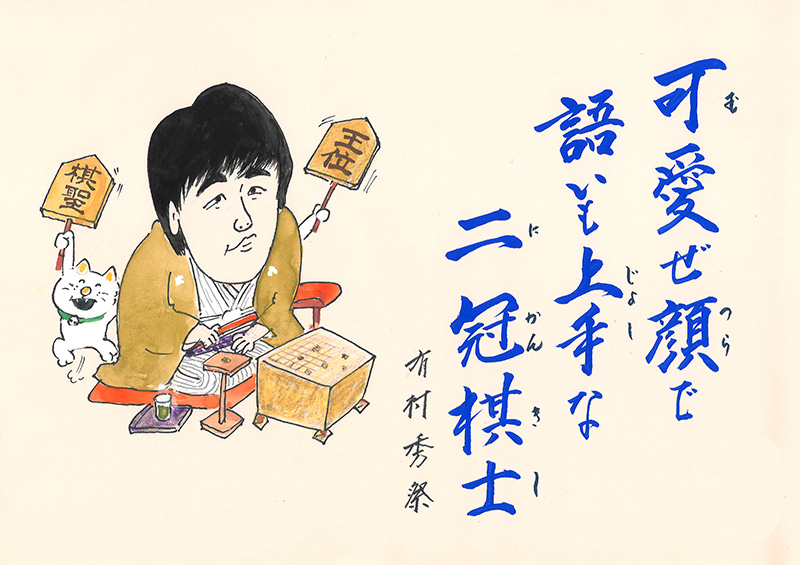 可愛ぜ顔で
む つら
語いも上手な
じょし
二冠棋士
に かん き し
有村秀祭
王位
棋聖